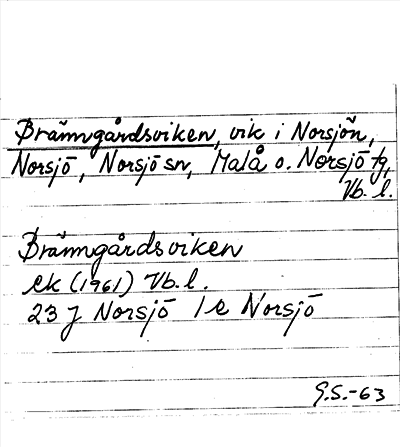 Bränngårdsviken, vik i Norsjön,
Norsjö, Norsjö sn, Malå o. Norsjö tg,
Vb. l.
Bränngårdsviken
ek (1961) Vb. l.
23 J Norsjö 1 e Norsjö
G.S.-63